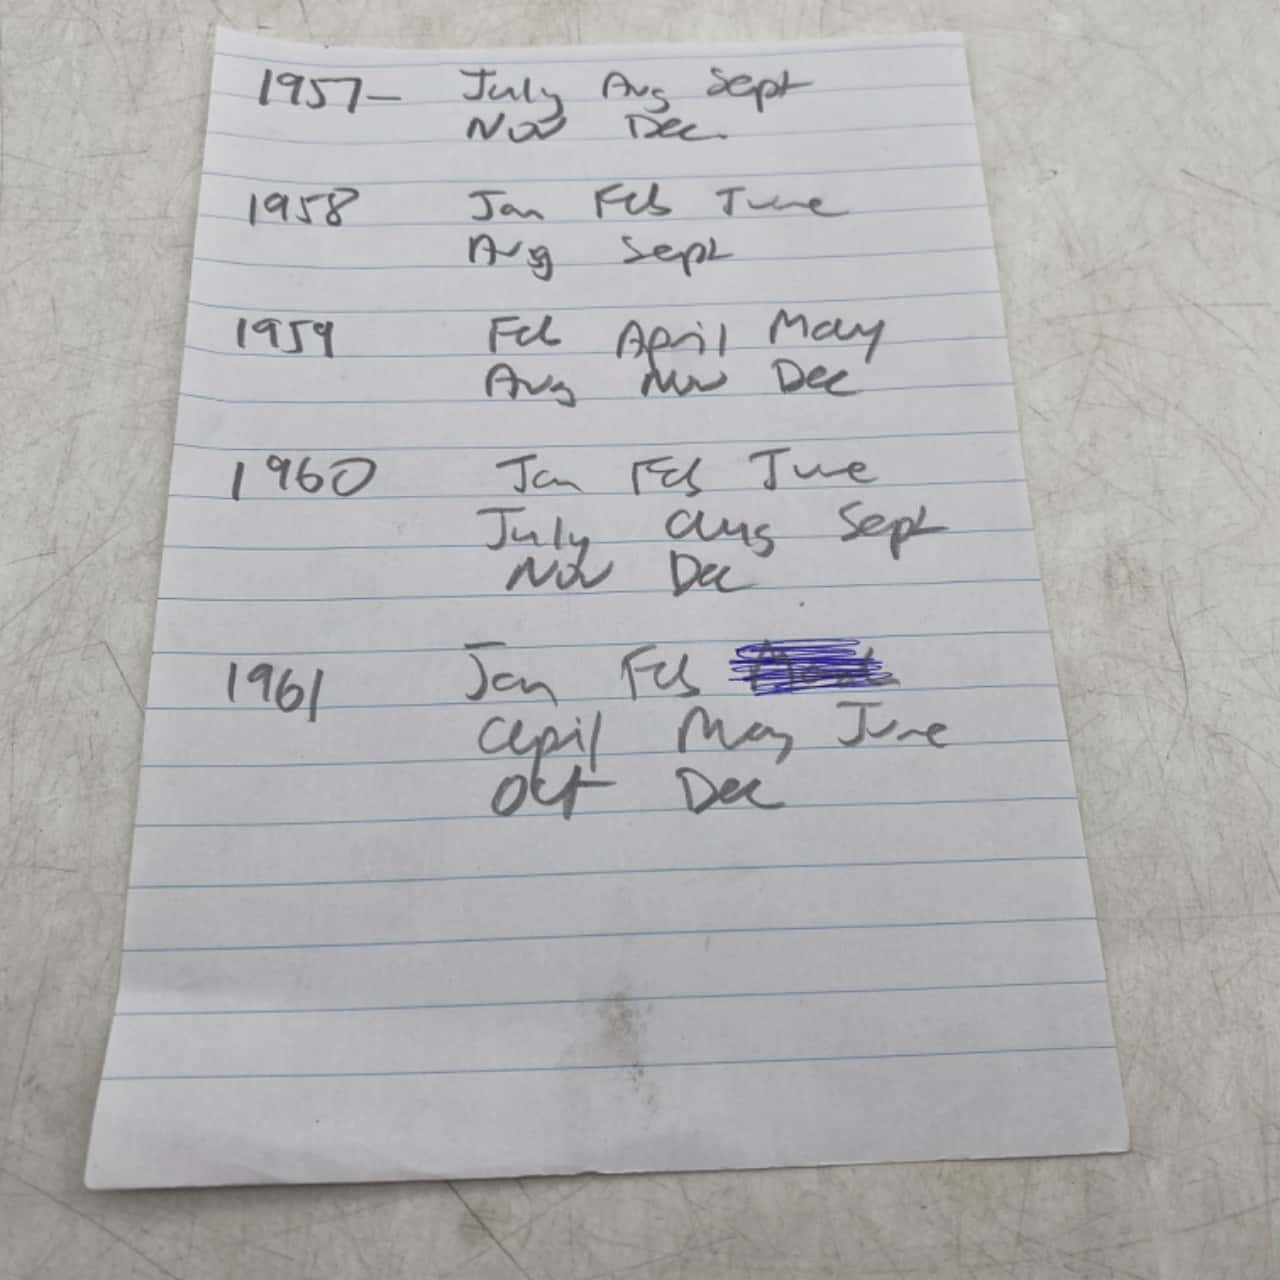 1957- July Aug Sept
Nov Dec.
1958 Jan Feb June
Aug Sept
1959 Feb April May
Aug Nov Dec
1960 Jan Feb June
July Aug Sept
Nov Dec
1961 Jan Feb
April May June
Oct Dec